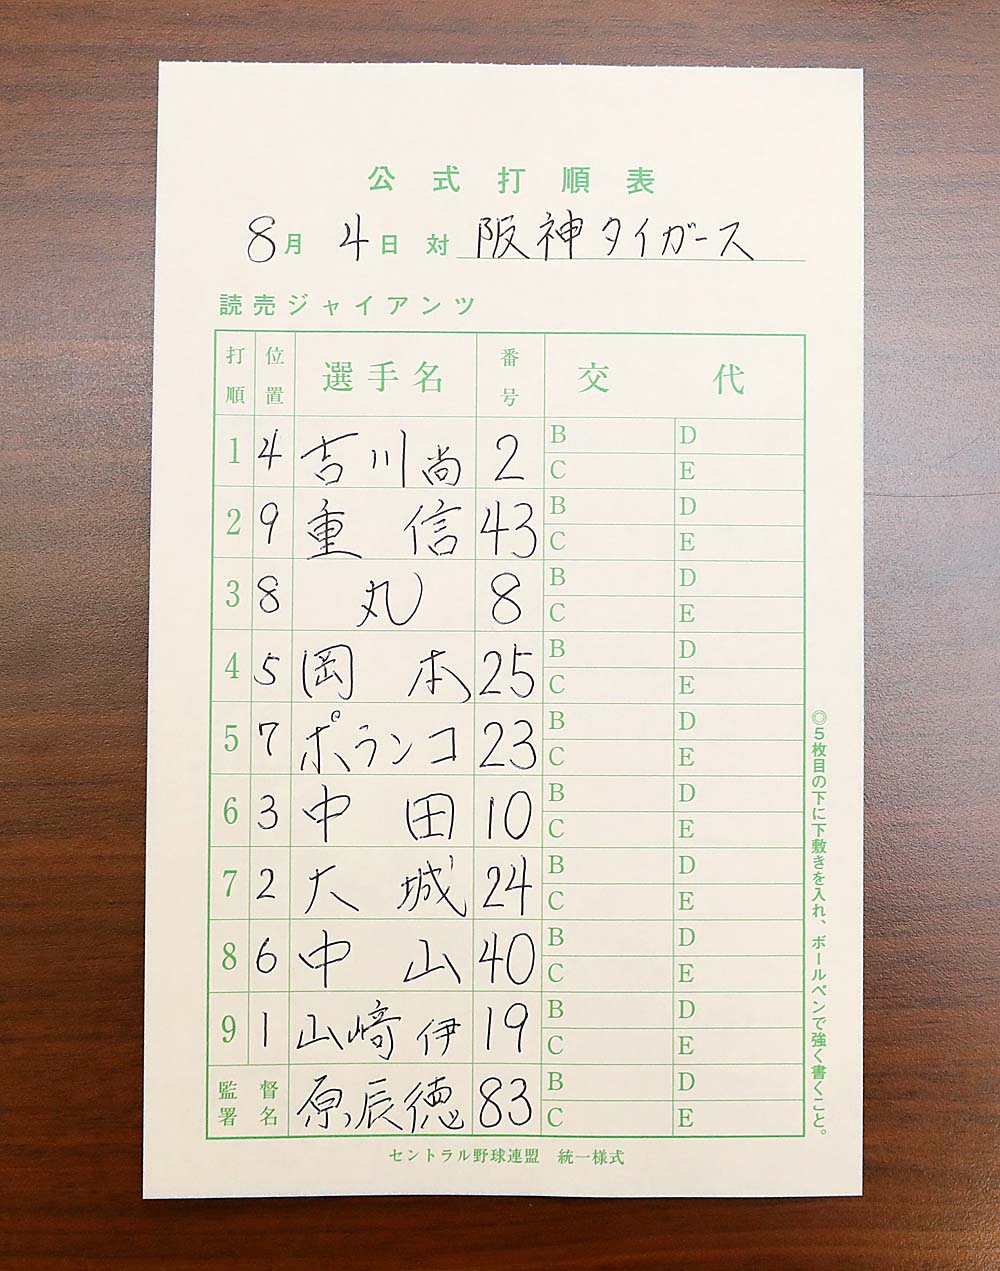 公式打順表
8月 4日 対 阪神タイガース
読売ジャイアンツ
打順 位置 選手名 番号 交代
1 4 吉川尚 2 B D C E
2 9 重信 43 B D C E
3 8 丸 8 B D C E
4 5 岡本 25 B D C E
5 7 ポランコ 23 B D C E
6 3 中田 10 B D C E
7 2 大城 24 B D C E
8 6 中山 40 B D C E
9 1 山﨑伊 19 B D C E
監督署名 原辰徳 83 B D C E
◎5枚目の下に下敷きを入れ、ボールペンで強く書くこと。
セントラル野球連盟 統一様式